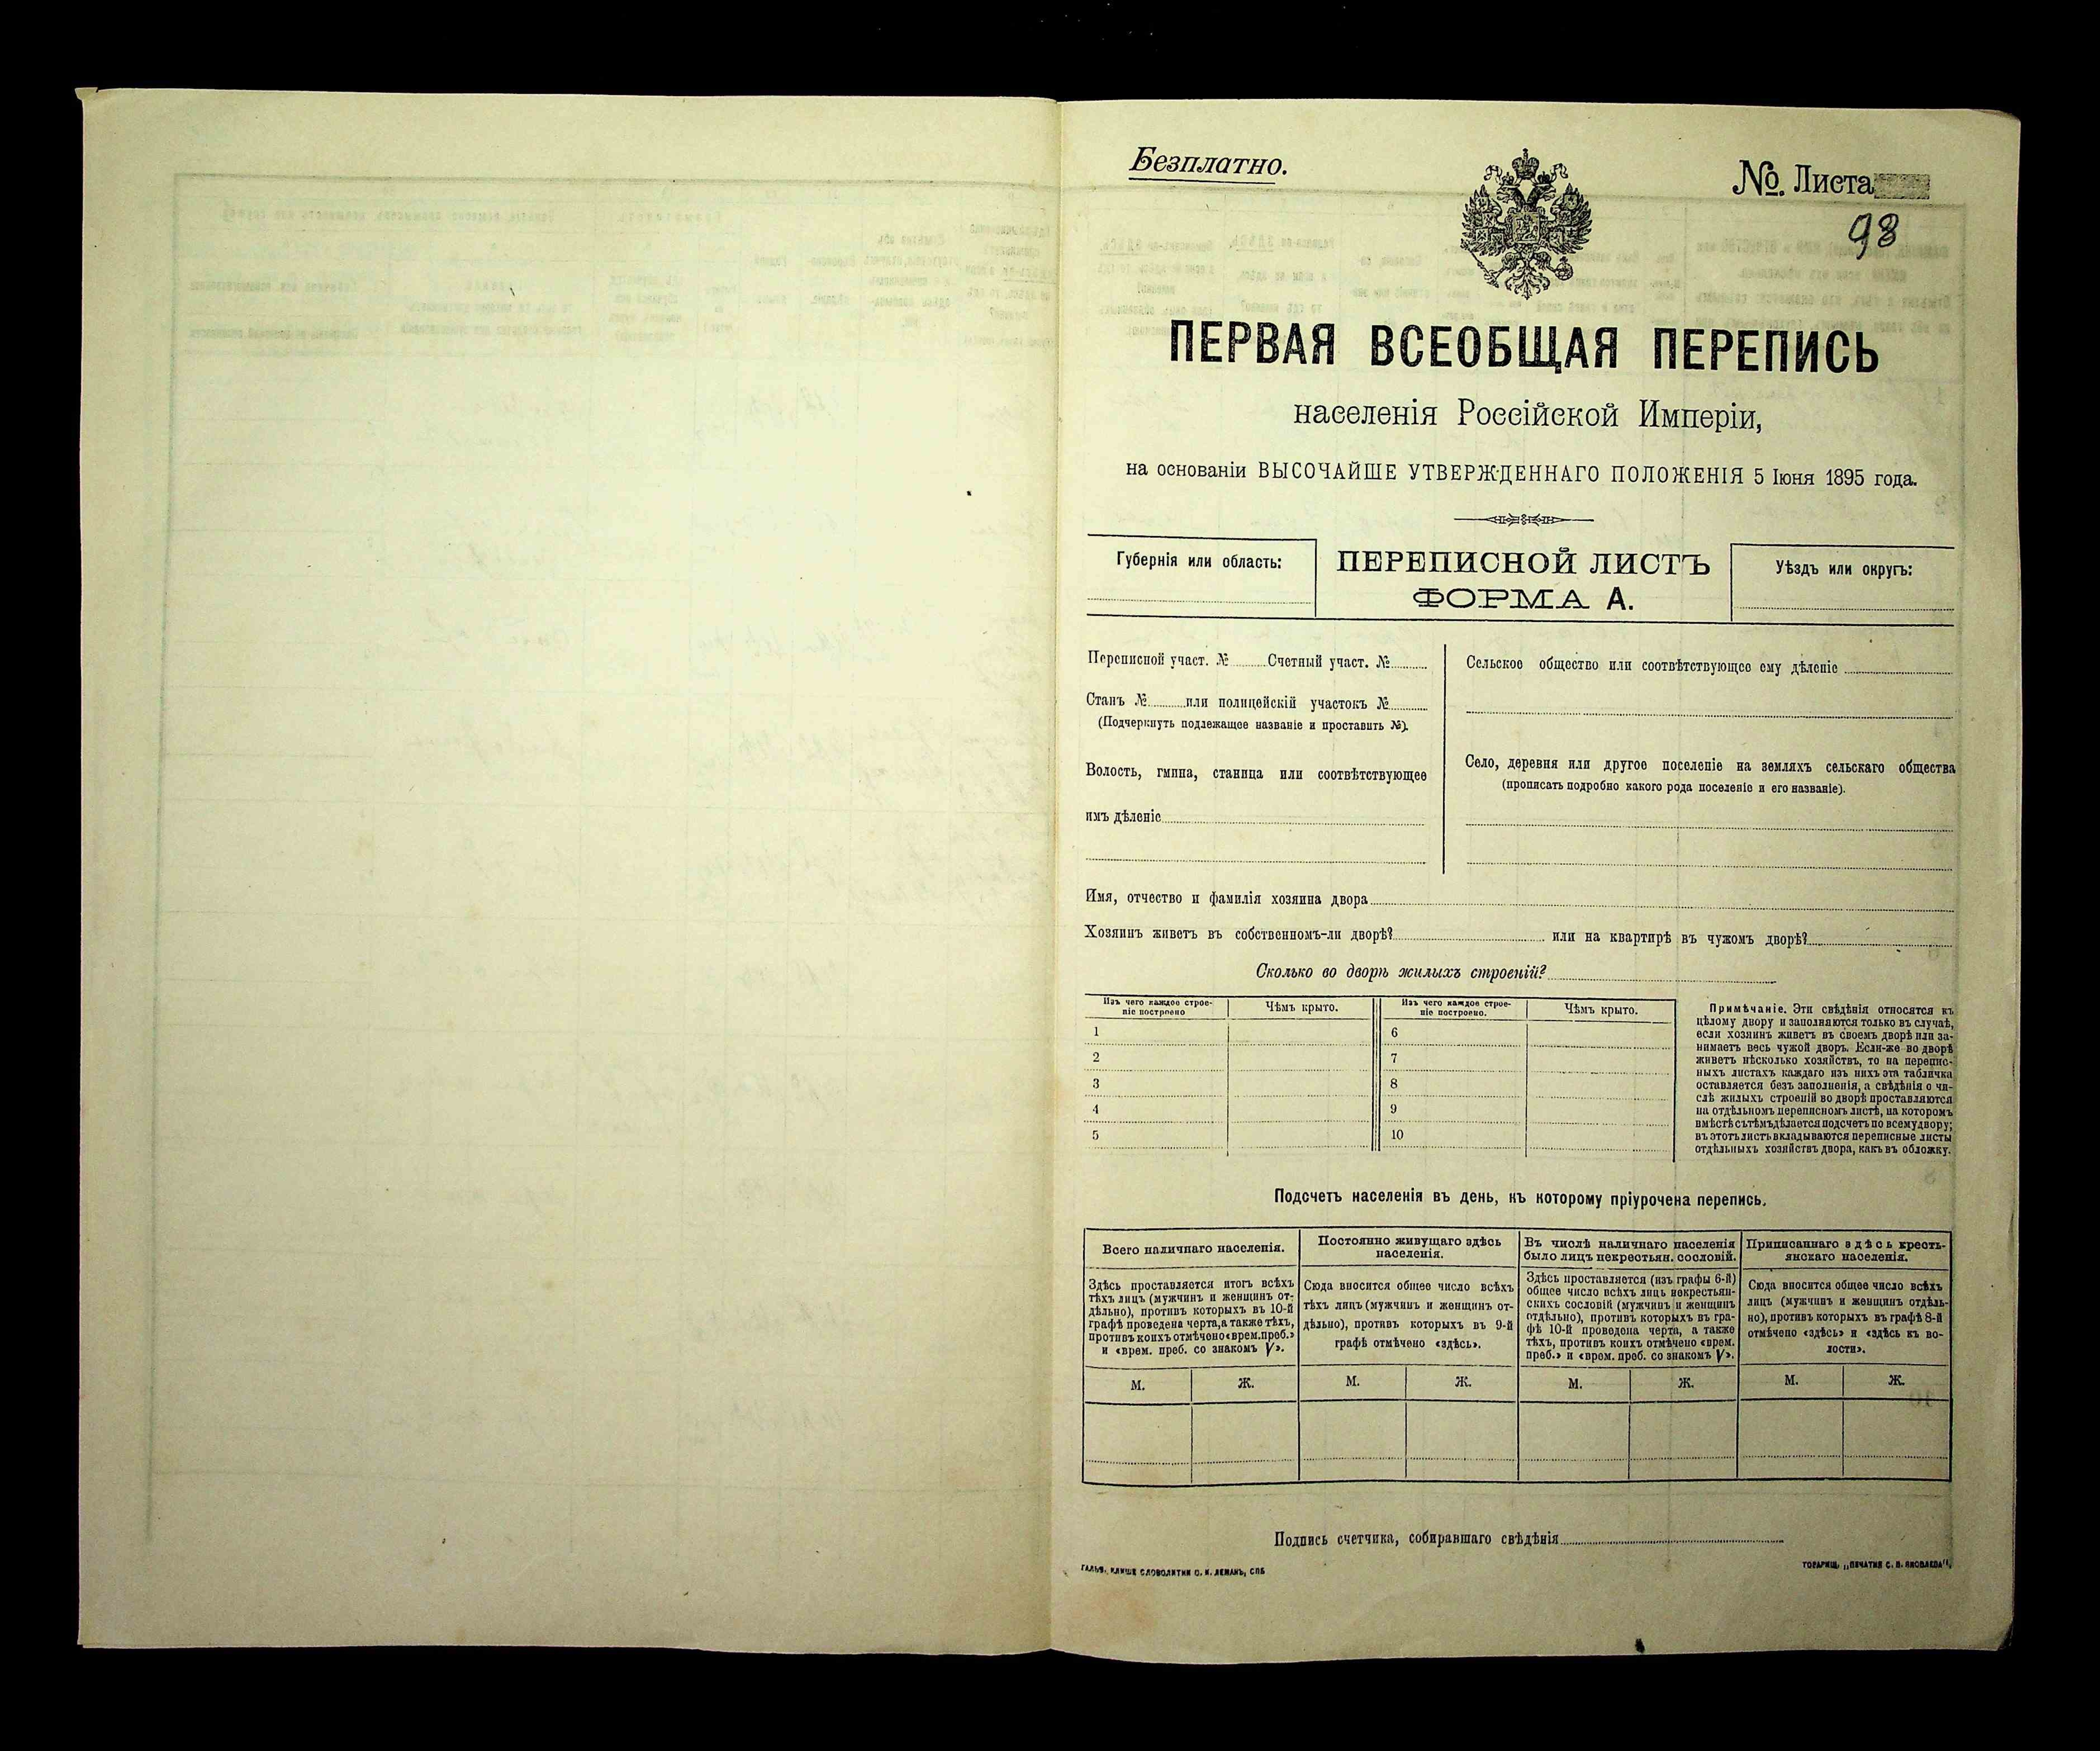 Безплатно.
№. Листа
98
ПЕРВАЯ ВСЕОБЩАЯ ПЕРЕПИСЬ
населенія Россійской Имперіи,
на основаніи ВЫСОЧАЙШЕ УТВЕРЖДЕННАГО ПОЛОЖЕНІЯ 5 Іюня 1895 года.
Губернія или область:
ПЕРЕПИСНОЙ ЛИСТЪ
ФОРМА А.
Уѣздъ или округъ:
Переписной участ. № Счетный участ. №
Станъ № или полицейскій участокъ №
(Подчеркнуть подлежащее названіе и проставить №).
Волость, гмина, станица или соотвѣтствующее
имъ дѣленіе
Сельское общество или соотвѣтствующее ему дѣленіе
Село, деревня или другое поселеніе на земляхъ сельскаго общества
(прописать подробно какого рода поселеніе и его названіе).
Имя, отчество и фамилія хозяина двора
Хозяинъ живетъ въ собственномъ-ли дворѣ? или на квартирѣ въ чужомъ дворѣ?
Сколько во дворѣ жилыхъ строеній?
Изъ чего каждое строе-
ніе построено
Чѣмъ крыто.
Изъ чего каждое строе-
ніе построено.
Чѣмъ крыто.
1
2
3
4
5
6
7
8
9
10
Примѣчаніе. Эти свѣдѣнія относятся къ
цѣлому двору и заполняются только въ случаѣ,
если хозяинъ живетъ въ своемъ дворѣ или за-
нимаетъ весь чужой дворъ. Если-же во дворѣ
живетъ нѣсколько хозяйствъ, то на перепис-
ныхъ листахъ каждаго изъ нихъ эта табличка
оставляется безъ заполненія, а свѣдѣнія о чи-
слѣ жилыхъ строеній во дворѣ проставляются
на отдѣльномъ переписномъ листѣ, на которомъ
вмѣстѣ съ тѣмъ дѣлается подсчетъ по всему двору;
въ этотъ листъ вкладываются переписные листы
отдѣльныхъ хозяйствъ двора, какъ въ обложку.
Подсчетъ населенія въ день, къ которому пріурочена перепись.
Всего наличнаго населенія.
Здѣсь проставляется итогъ всѣхъ
тѣхъ лицъ (мужчинъ и женщинъ от-
дѣльно), противъ которыхъ въ 10-й
графѣ проведена черта, а также тѣхъ,
противъ коихъ отмѣчено «врем. преб.»
и «врем. преб. со знакомъ V».
М. Ж.
Постоянно живущаго здѣсь
населенія.
Сюда вносится общее число всѣхъ
тѣхъ лицъ (мужчинъ и женщинъ от-
дѣльно), противъ которыхъ въ 9-й
графѣ отмѣчено «здѣсь».
М. Ж.
Въ числѣ наличнаго населенія
было лицъ некрестьян. сословій.
Здѣсь проставляется (изъ графы 6-й)
общее число всѣхъ лицъ некрестьян-
скихъ сословій (мужчинъ и женщинъ
отдѣльно), противъ которыхъ въ гра-
фѣ 10-й проведена черта, а также
тѣхъ, противъ коихъ отмѣчено «врем.
преб.» и «врем. преб. со знакомъ V».
М. Ж.
Приписаннаго здѣсь кресть-
янскаго населенія.
Сюда вносится общее число всѣхъ
лицъ (мужчинъ и женщинъ отдѣль-
но), противъ которыхъ въ графѣ 8-й
отмѣчено «здѣсь» и «здѣсь къ во-
лости».
М. Ж.
Подпись счетчика, собиравшаго свѣдѣнія
КЛИШЕ СЛОВОЛИТНИ О. И. ЛЕМАНЪ, СПБ
ТОВАРИЩ. „ПЕЧАТНЯ С. П. ЯКОВЛЕВА“.